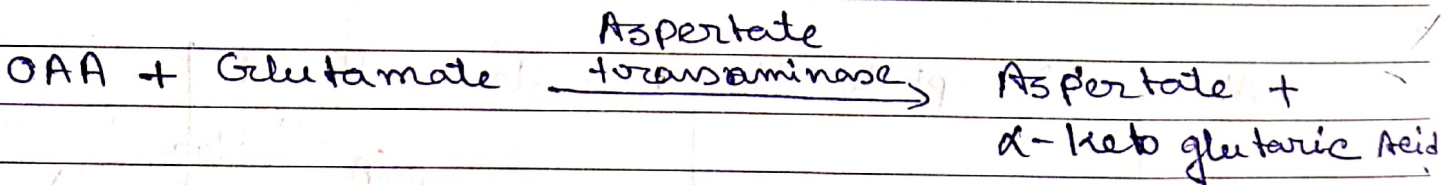 Aspertate
OAA + Glutamate transaminase → Aspertate +
α-Keto glutaric Acid